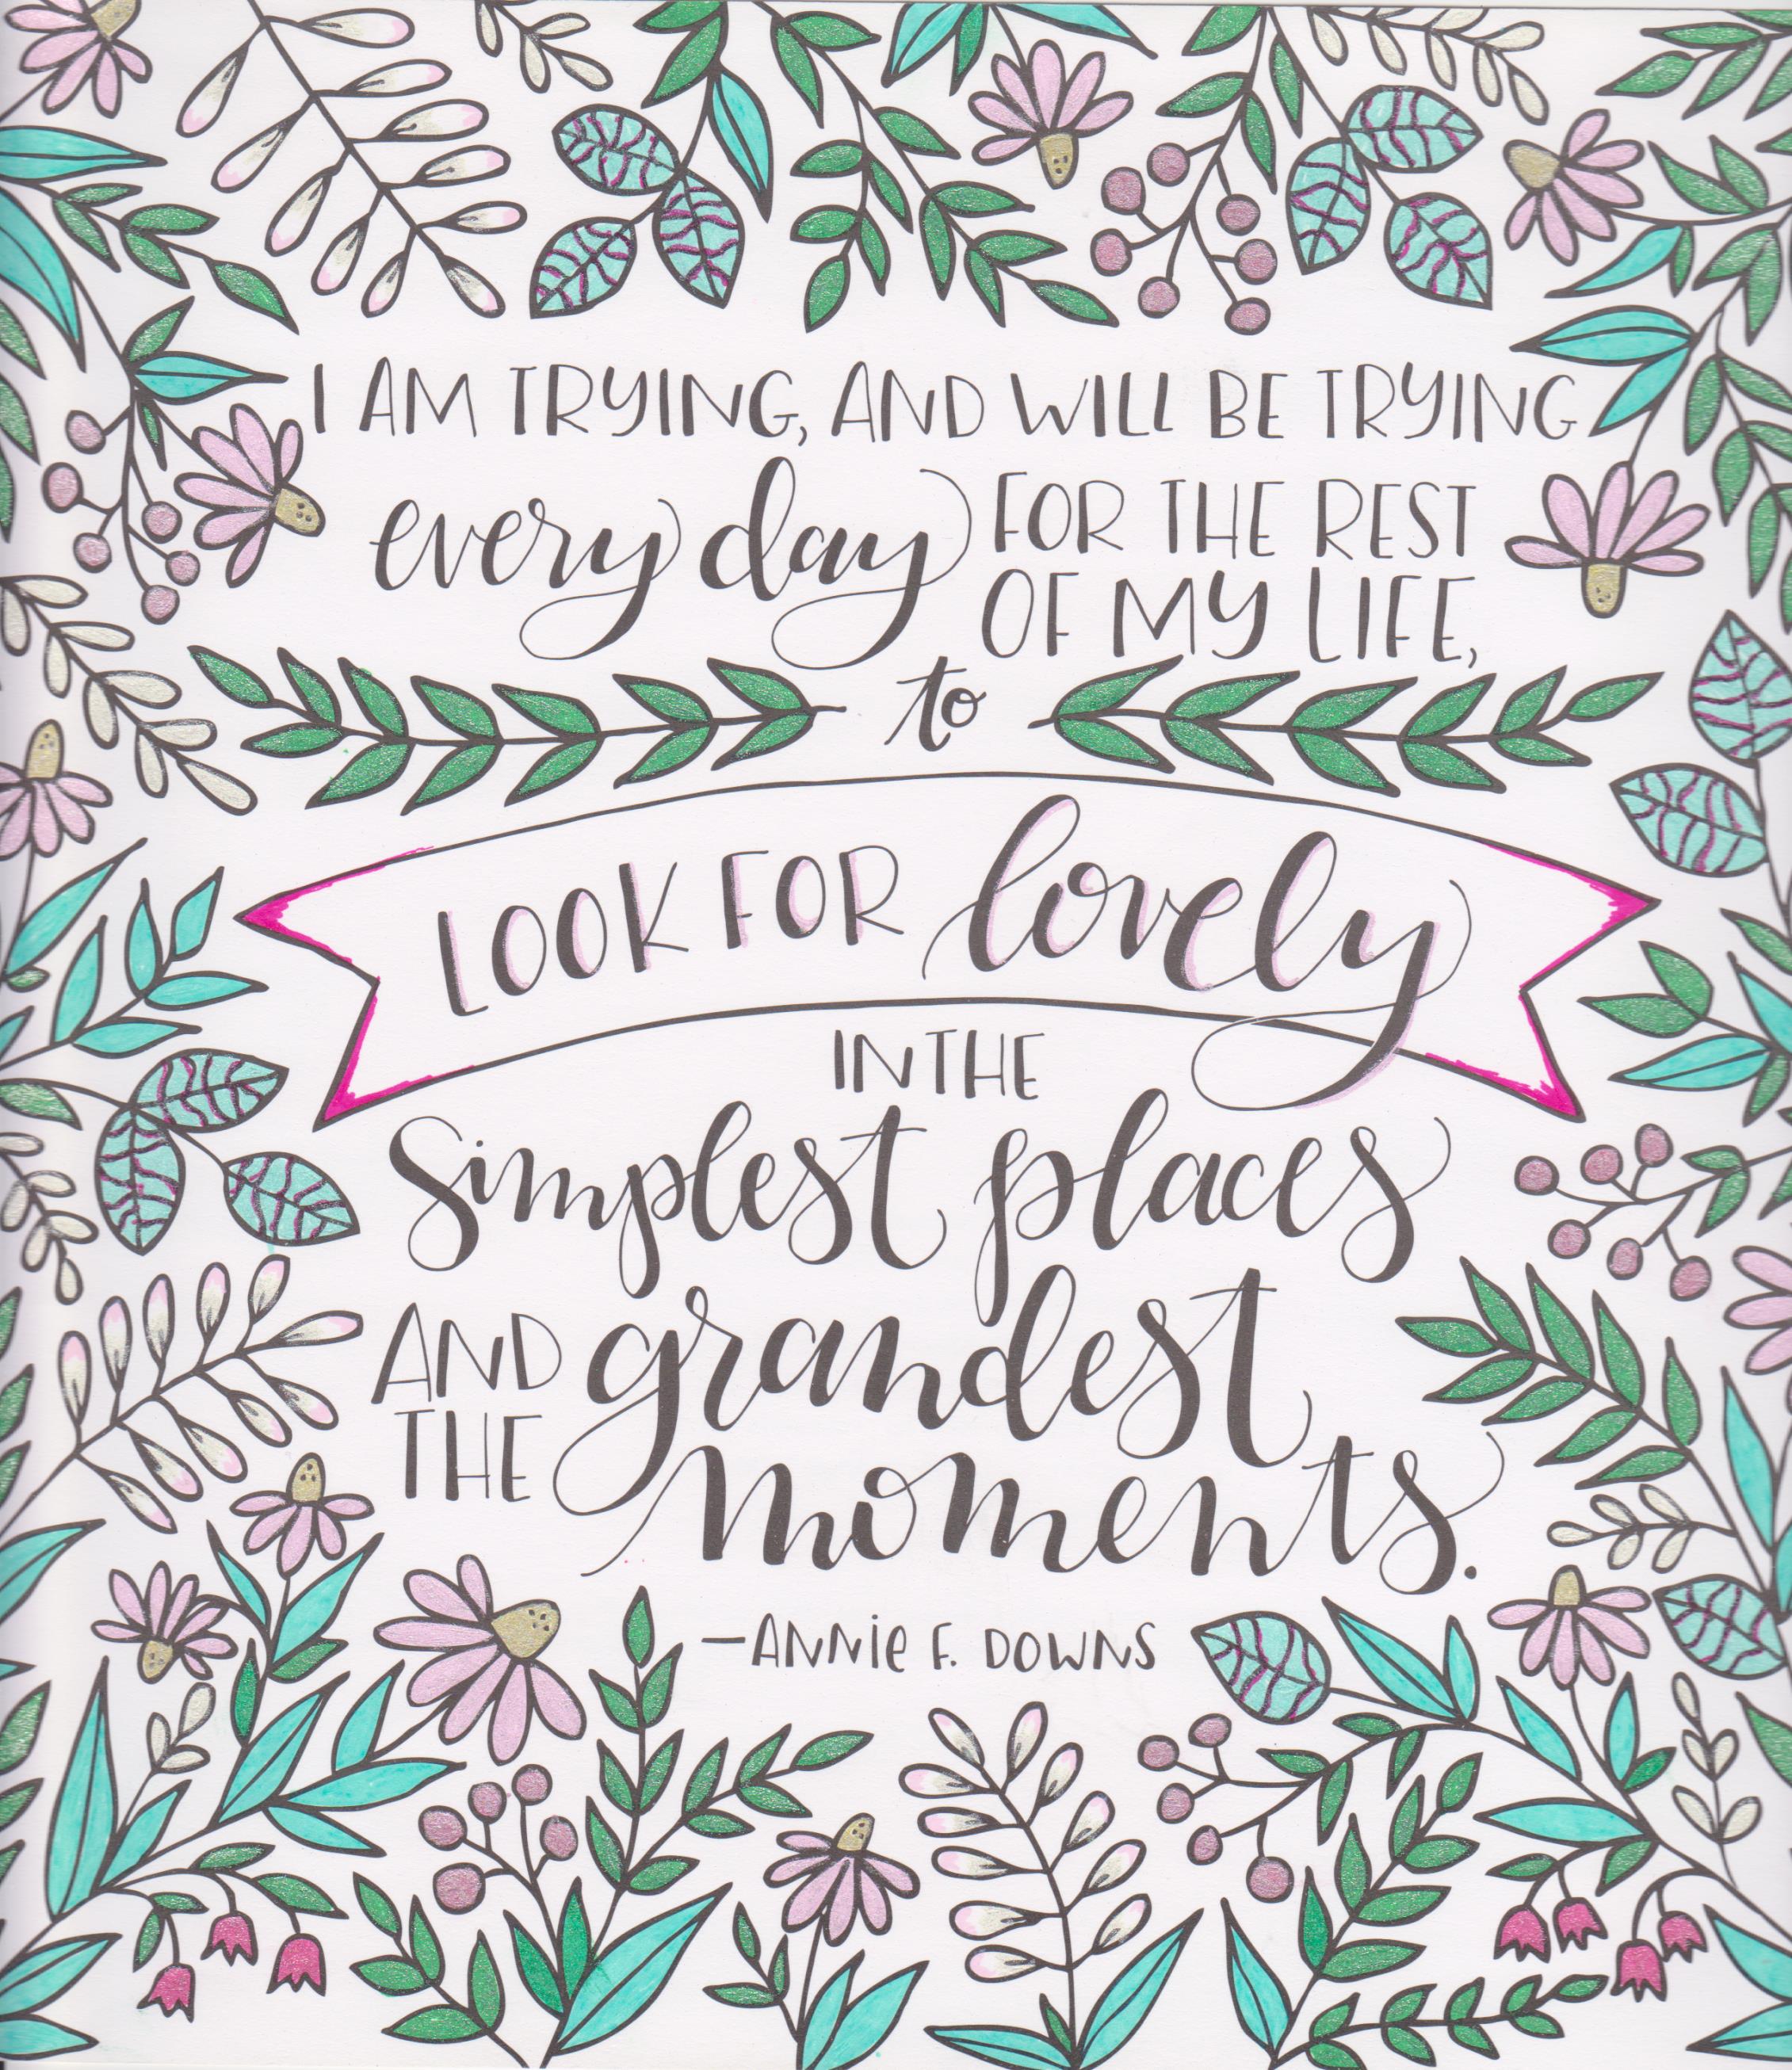 I AM TRYING, AND WILL BE TRYING
every day FOR THE REST
OF MY LIFE,
to
LOOK FOR lovely
IN THE
simplest places
AND grandest
THE moments.
—ANNie F. DOWNS